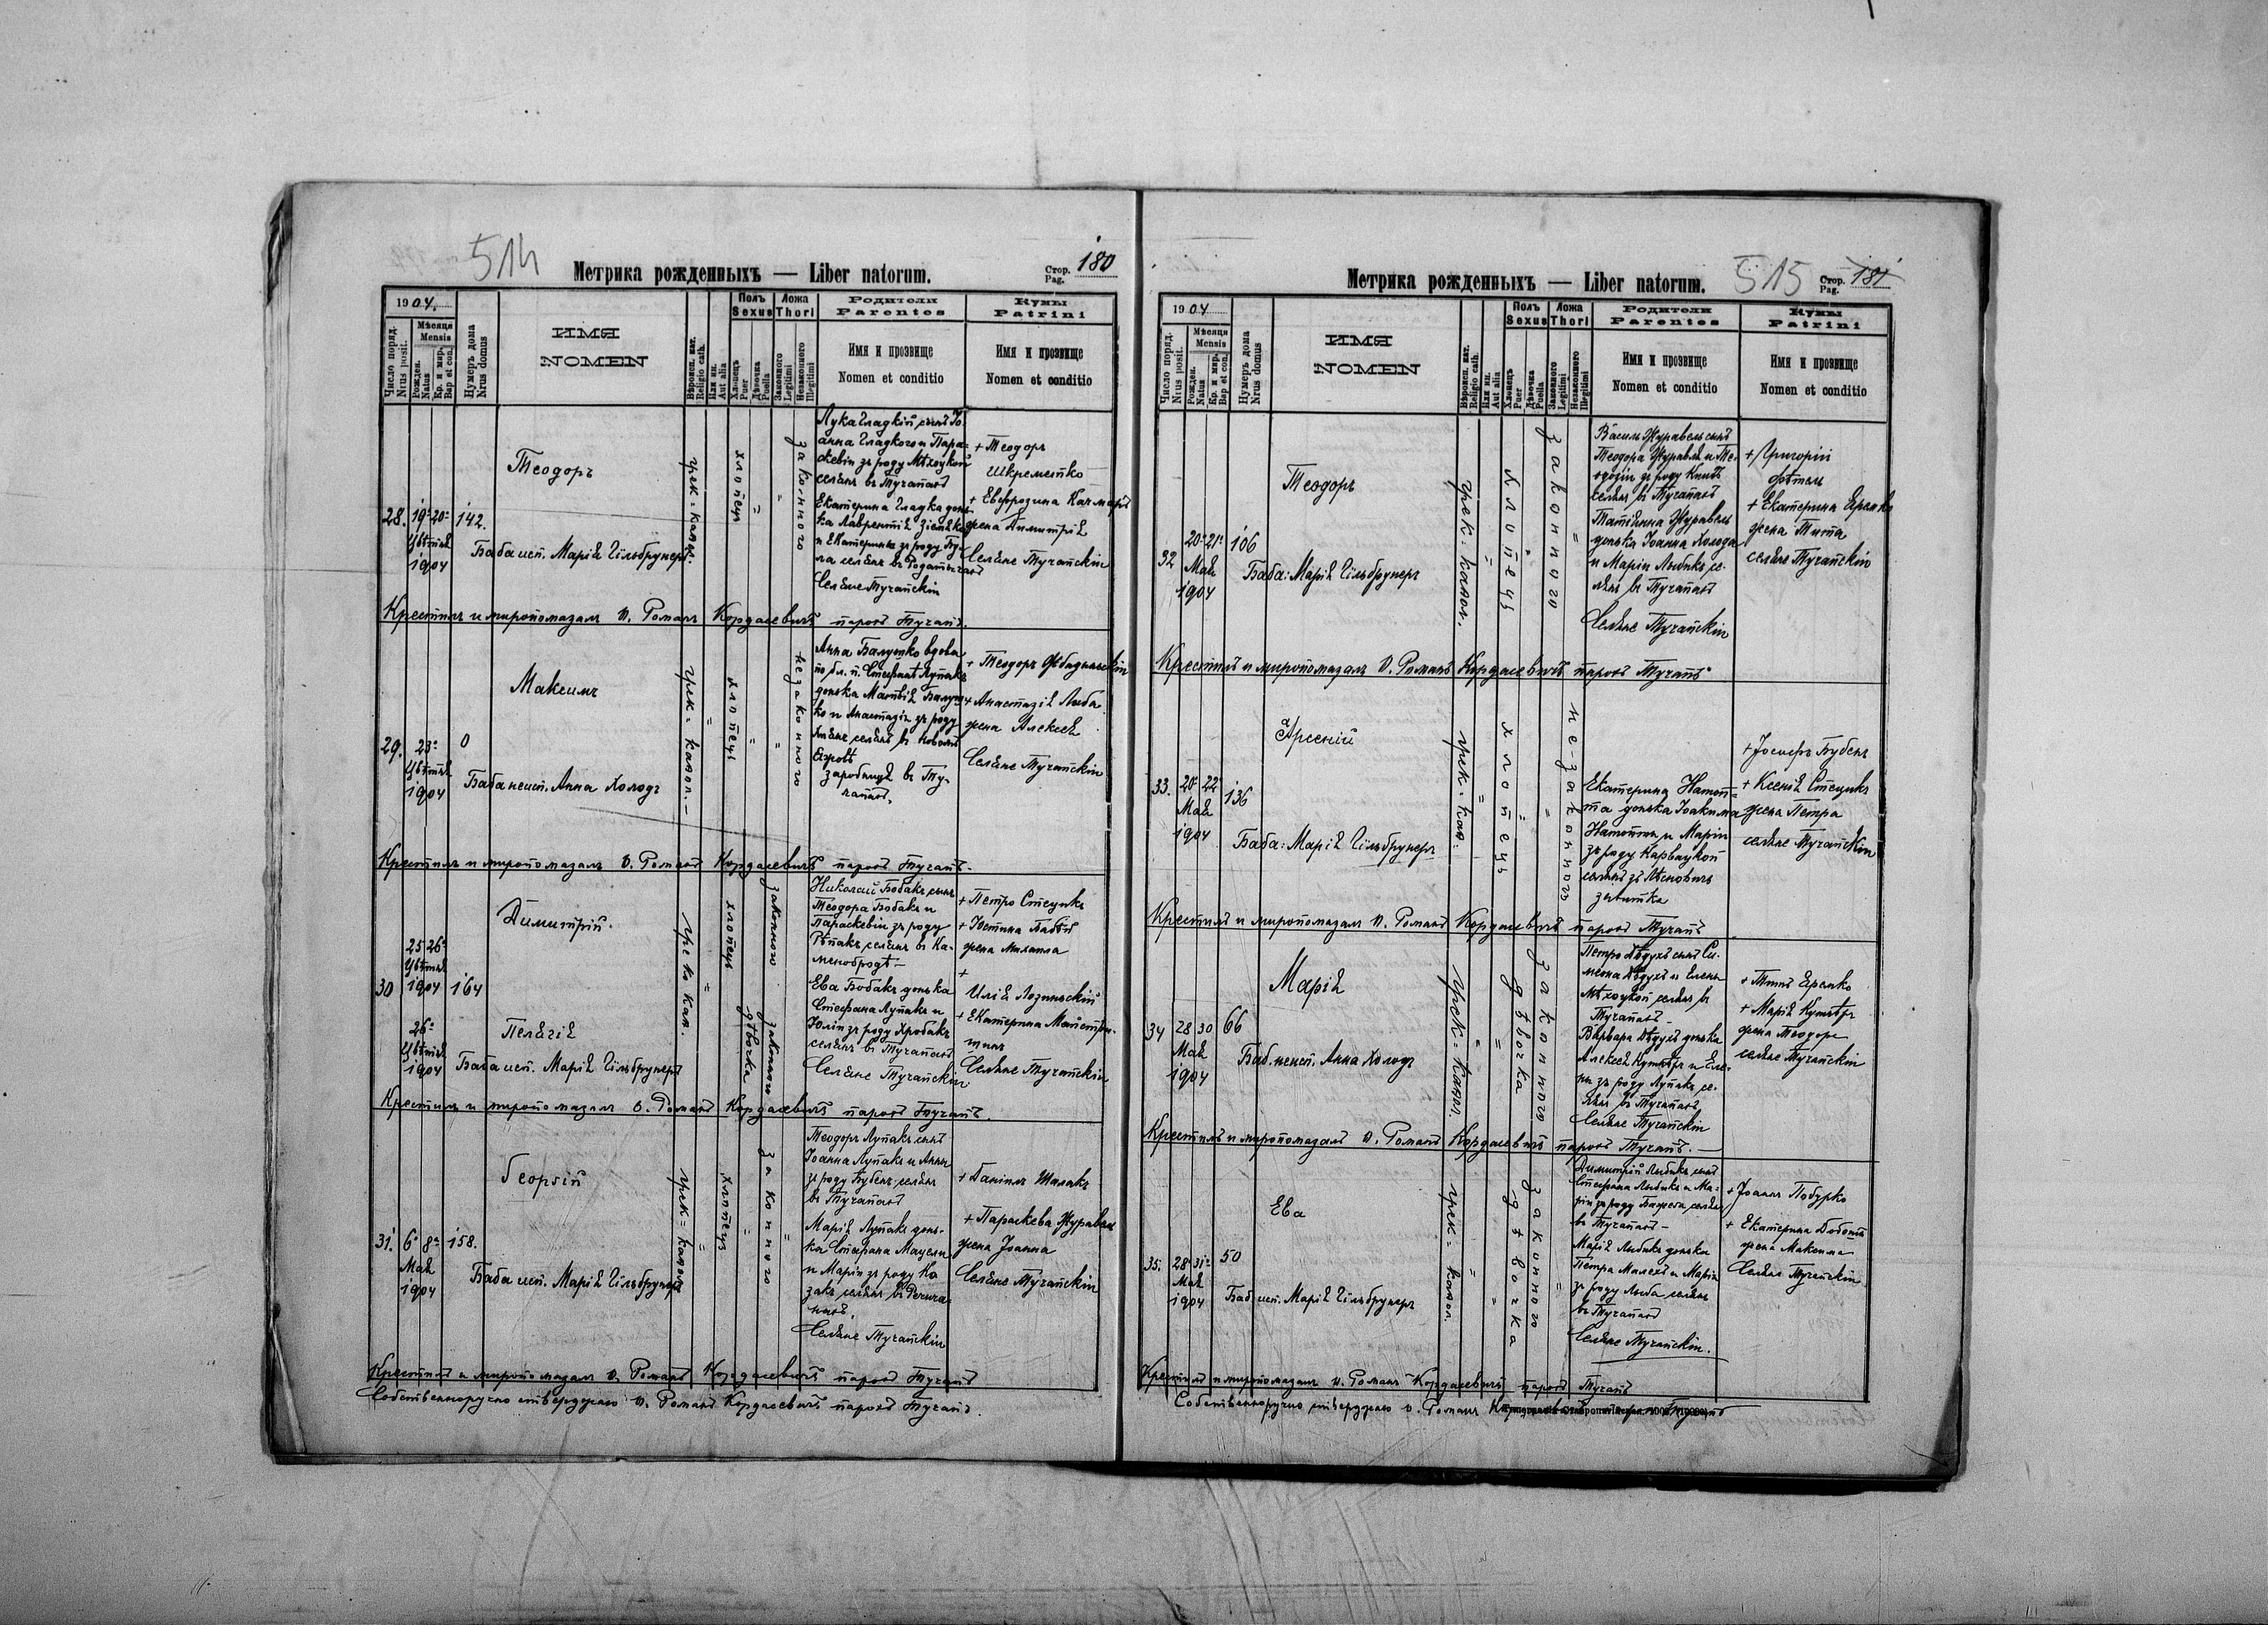 514
Метрика рожденныхъ — Liber natorum.
Стор. Pag. 180
1904.
Число поряд. Nrus posit.
Мѣсяца Mensis
Рожден. Natus
Кр. и мир. Bap et con.
Нумеръ дома Nrus domus
ИМЯ
NOMEN
Вѣроисп. кат. Religio cath.
Или ин. Aut alia
Полъ Sexus
Хлопецъ Puer
Дѣвочка Puella
Ложа Thori
Законного Legitimi
Незаконного Illegitimi
Родители
Parentes
Имя и прозвище
Nomen et conditio
Кумы
Patrini
Имя и прозвище
Nomen et conditio
28. 19 20 142.
Цвѣтня
1904
Теодоръ
Баба исп. Марія Гільбрунеръ
грек: катол.
хлопецъ
законного
Лука Гладкій, сынъ Іо-
анна Гладкого и Пара-
скевіи зъ роду Мѣхоцкои
селянъ въ Тучапахъ
Екатерина Гладка донь-
ка Лаврентія
и Екатерины зъ роду
селянъ въ Родатичахъ
Селяне Тучапскіи
+ Теодоръ
Шкреметко
+ Евфрозина Качмаръ
жена Димитрія
Селяне Тучапскіи
Крестилъ и миропомазалъ о. Романъ Кордасевичъ парохъ Тучапъ.
29. 23
Цвѣтня
1904
0
Максимъ
Баба неисп. Анна Холодъ
грек: катол. —
хлопецъ
незаконного
Анна Балушко вдова
по бл. п. Стефанѣ Лупакъ
донька Матвія Балуш-
ко и Анастазіи зъ роду
селянъ въ
заробниця въ Ту-
чапахъ.
+ Теодоръ
+ Анастазія Люба
жена Алексея
Селяне Тучапскіи
Крестилъ и миропомазалъ о. Романъ Кордасевичъ парохъ Тучапъ.
30 25 26
Цвѣтня
1904 164
Димитрій.
26
Цвѣтня
1904
Пелагія
Баба исп. Марія Гільбрунеръ
греко кат.
хлопецъ
законного
дѣвочка
законного
Николай Бобакъ, сынъ
Теодора Бобакъ и
Параскевіи зъ роду
Рѣпакъ, селянъ въ Ка-
менобродѣ —
Ева Бобакъ донька
Стефана Лупакъ и
Юліи зъ роду Хробакъ
селянъ въ Тучапахъ
Селяне Тучапскіи
+ Петро Стецикъ
+ Юстина Бабій
жена Михаила
+
Илія Лозинскій
+ Екатерина
Селяне Тучапскіи
Крестилъ и миропомазалъ о. Романъ Кордасевичъ парохъ Тучапъ.
31. 6 8 158.
Мая
1904
Георгій
Баба исп. Марія Гільбрунеръ
грек: катол.
хлопецъ
законного
Теодоръ Лупакъ, сынъ
Іоанна Лупакъ и Анны
зъ роду Бубенъ, селянъ
въ Тучапахъ
Марія Лупакъ донь-
ка Стефана Мацели
и Маріи зъ роду Ко
закъ, селянъ въ Речича-
нахъ
Селяне Тучапскіи
+ Даніилъ Шалакъ
+ Параскева Журавель
жена Іоанна
Селяне Тучапскіи
Крестилъ и миропомазалъ о. Романъ Кордасевичъ парохъ Тучапъ
Собственноручно стверджаю о. Романъ Кордасевичъ парохъ Тучапъ.
Метрика рожденныхъ — Liber natorum.
515
Стор. Pag. 181
1904
Число поряд. Nrus posit.
Мѣсяца Mensis
Рожден. Natus
Кр. и мир. Bap et con.
Нумеръ дома Nrus domus
ИМЯ
NOMEN
Вѣроисп. кат. Religio cath.
Или ин. Aut alia
Полъ Sexus
Хлопецъ Puer
Дѣвочка Puella
Ложа Thori
Законного Legitimi
Незаконного Illegitimi
Родители
Parentes
Имя и прозвище
Nomen et conditio
Кумы
Patrini
Имя и прозвище
Nomen et conditio
32 20 21 106
Мая
1904
Теодоръ
Баба: Марія Гільбрунеръ
грек: катол.
хлопецъ
законного
Василь Журавель сынъ
Теодора Журавля и Те-
одозіи зъ роду
селянъ въ Тучапахъ
Татіянна Журавель
донька Іоанна Холода
и Маріи Лыбикъ се-
лянъ въ Тучапахъ
Селяне Тучапскіи
+ Григорій
+ Екатерина Еремко
жена Тита
селяне Тучапскіи
Крестилъ и миропомазалъ о. Романъ Кордасевичъ парохъ Тучапъ.
33. 20 22 136
Мая
1904
Арсеній
Баба: Марія Гільбрунеръ
грек: кат.
хлопецъ
не-законного
Екатерина
донька Іоакима
и Маріи
зъ роду
селянъ зъ
+ Іосифъ Бубенъ
+ Ксенія Стецикъ
жена Петра
селяне Тучапскіи
Крестилъ и миропомазалъ о. Романъ Кордасевичъ парохъ Тучапъ
34 28 30 66
Мая
1904
Марія
Баб. неисп. Анна Холодъ
грек: катол.
дѣвочка
законного
Петро Дѣдухъ сынъ Си-
меона Дѣдухъ и Елены
Мѣхоцкои, селянъ въ
Тучапахъ —
Варвара Дѣдухъ донька
Алексея Кушнѣръ и Еле-
ны зъ роду Лупакъ, се-
лянъ въ Тучапахъ,
Селяне Тучапскіи
+ Титъ Еремко
+ Марія Кушнѣръ
жена Теодора
селяне Тучапскіи
Крестилъ и миропомазалъ о. Романъ Кордасевичъ парохъ Тучапъ. —
35. 28 31 50
Мая
1904
Ева
Баб. исп. Марія Гільбрунеръ
грек: катол.
дѣвочка
законного
Димитрій Лыбикъ, сынъ
Стефана Лыбикъ и Ма-
ріи зъ роду селянъ
въ Тучапахъ —
Марія Лыбикъ донька
Петра Малехъ и Маріи
зъ роду Люба селянъ
въ Тучапахъ
Селяне Тучапскіи.
+ Іоаннъ Побурко
+ Екатерина
жена Максима
Селяне Тучапскіи
Крестилъ и миропомазалъ о. Романъ Кордасевичъ парохъ Тучапъ
Собственноручно стверджаю о. Романъ